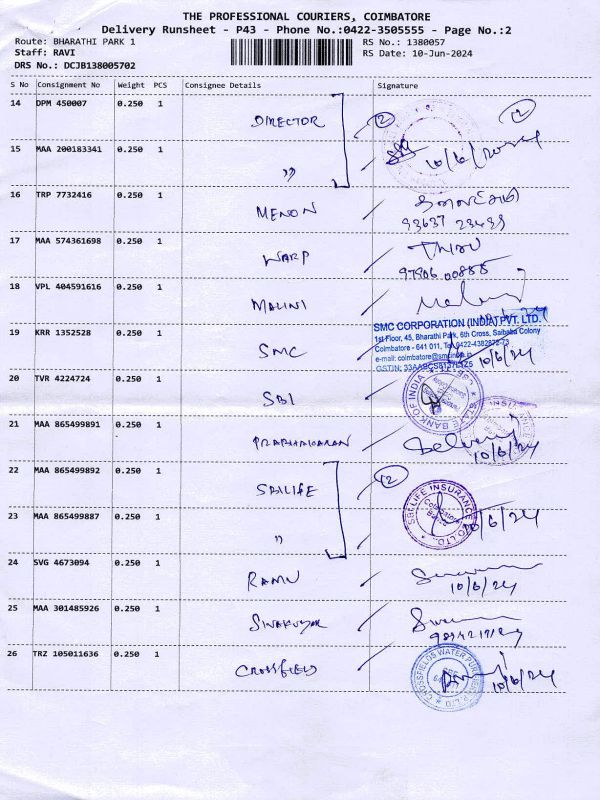 THE PROFESSIONAL COURIERS, COIMBATORE
Delivery Runsheet - P43 - Phone No.:0422-3505555 - Page No.:2
Route: BHARATHI PARK 1 RS No.: 1380057
Staff: RAVI RS Date: 10-Jun-2024
DRS No.: DCJB138005702
S No Consignment No Weight PCS Consignee Details Signature
14 DPM 450007 0.250 1 DIRECTOR 2 2
15 MAA 200183341 0.250 1 " 10/6/2024
16 TRP 7732416 0.250 1 MENON
93637 23439
17 MAA 574361698 0.250 1 WARP THIRU
97906 00855
18 VPL 404591616 0.250 1 MALINI
SMC CORPORATION (INDIA) PVT. LTD.
1st Floor, 45, Bharathi Park, 6th Cross, Saibaba Colony
19 KRR 1352528 0.250 1 SMC Coimbatore - 641 011, 10/6/24
e-mail: coimbatore@smcindia.in
20 TVR 4224724 0.250 1 SBI STATE BANK OF INDIA
21 MAA 865499891 0.250 1 PRABHAKARAN Delivery
10/6/24
22 MAA 865499892 0.250 1 SBILIFE 2
23 MAA 865499887 0.250 1 " SBI LIFE INSURANCE CO. LTD. 10/6/24
24 SVG 4673094 0.250 1 RAMU
10/6/24
25 MAA 301485926 0.250 1 SIVAKUMAR
26 TRZ 105011636 0.250 1 CROSSFIELD CROSSFIELDS WATER
10/6/24